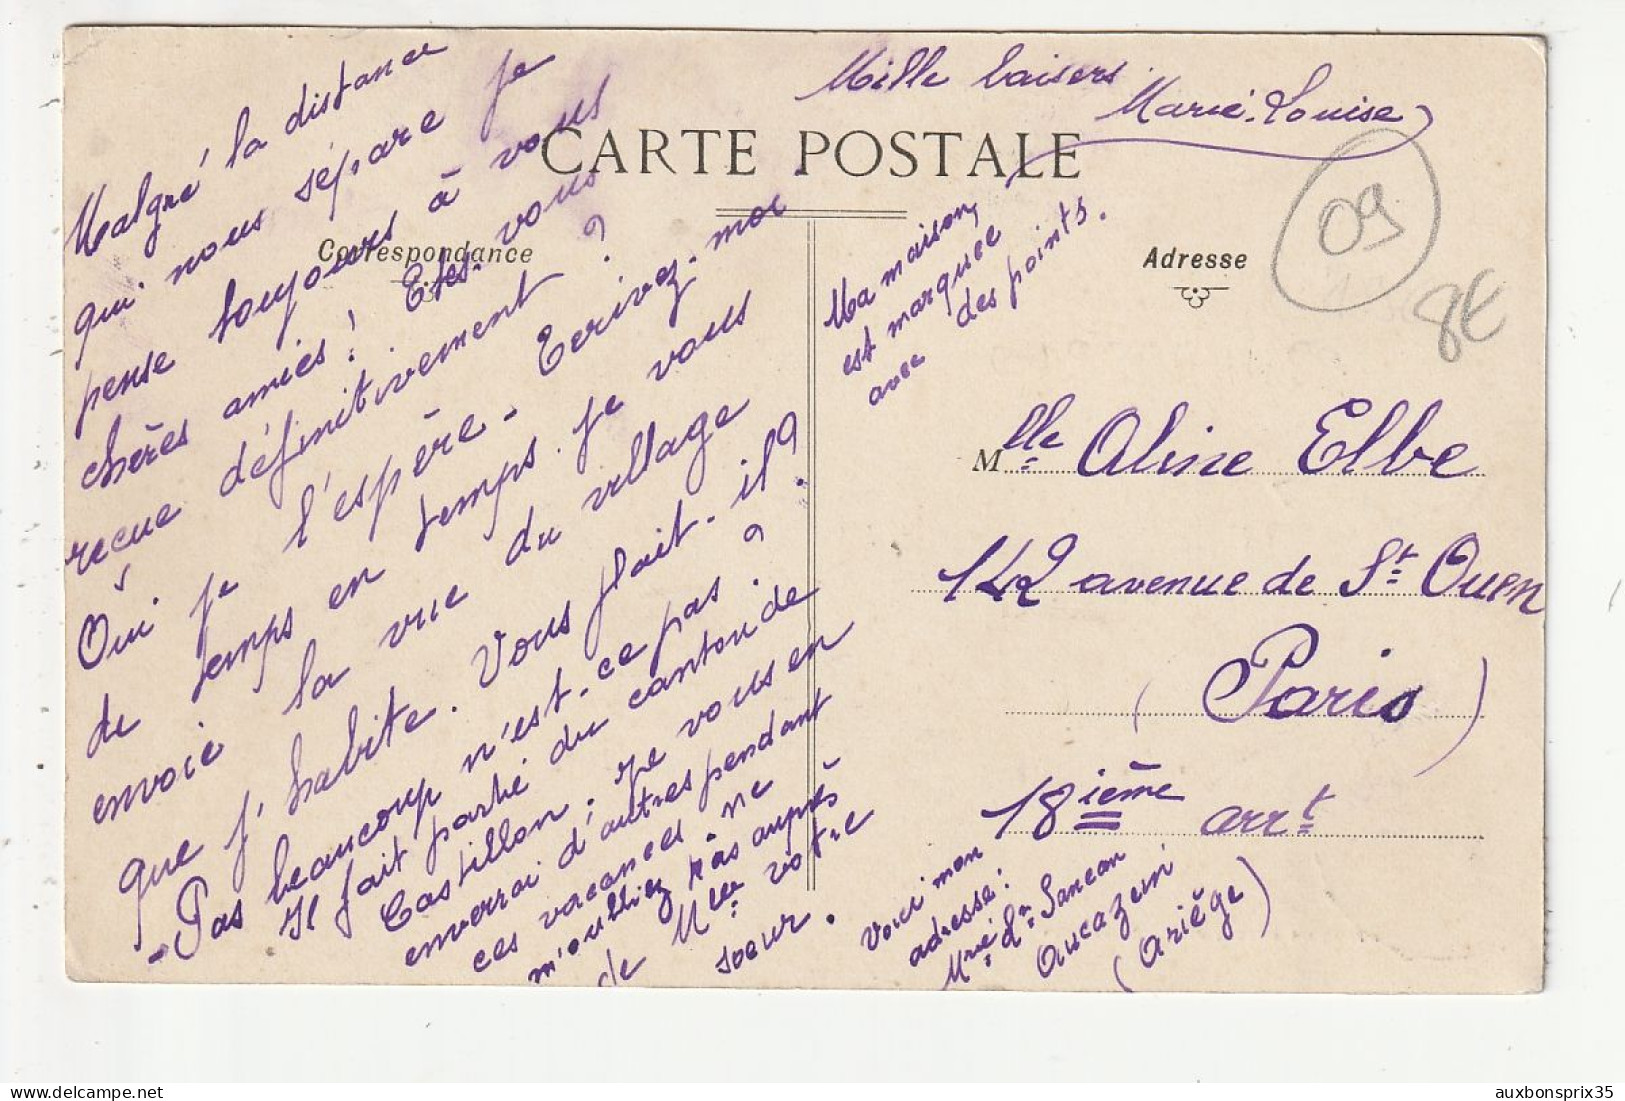 Mille baisers
Marie-Louise
CARTE POSTALE
Correspondance
Adresse
09
8€
Malgré la distance
qui nous sépare je
pense toujours à vous
chères amies! Etes-vous
reçue définitivement ?
Oui je l'espère. Ecrivez-moi
de temps en temps. Je vous
envoie la vue du village
que j'habite. Vous plait-il?
- Pas beaucoup n'est-ce pas ?
Il fait partie du canton de
Castillon. Je vous en
enverrai d'autres pendant
ces vacances. ne
m'oubliez pas auprès
de Mlle votre
soeur.
Ma maison,
est marquée
avec des points.
Mlle Aline Elbe
142 avenue de St Ouen
(Paris)
18ième arrt
Voici mon
adresse:
Mrie Le Sancan
Aucazein
(Ariège)
auxbonsprix35